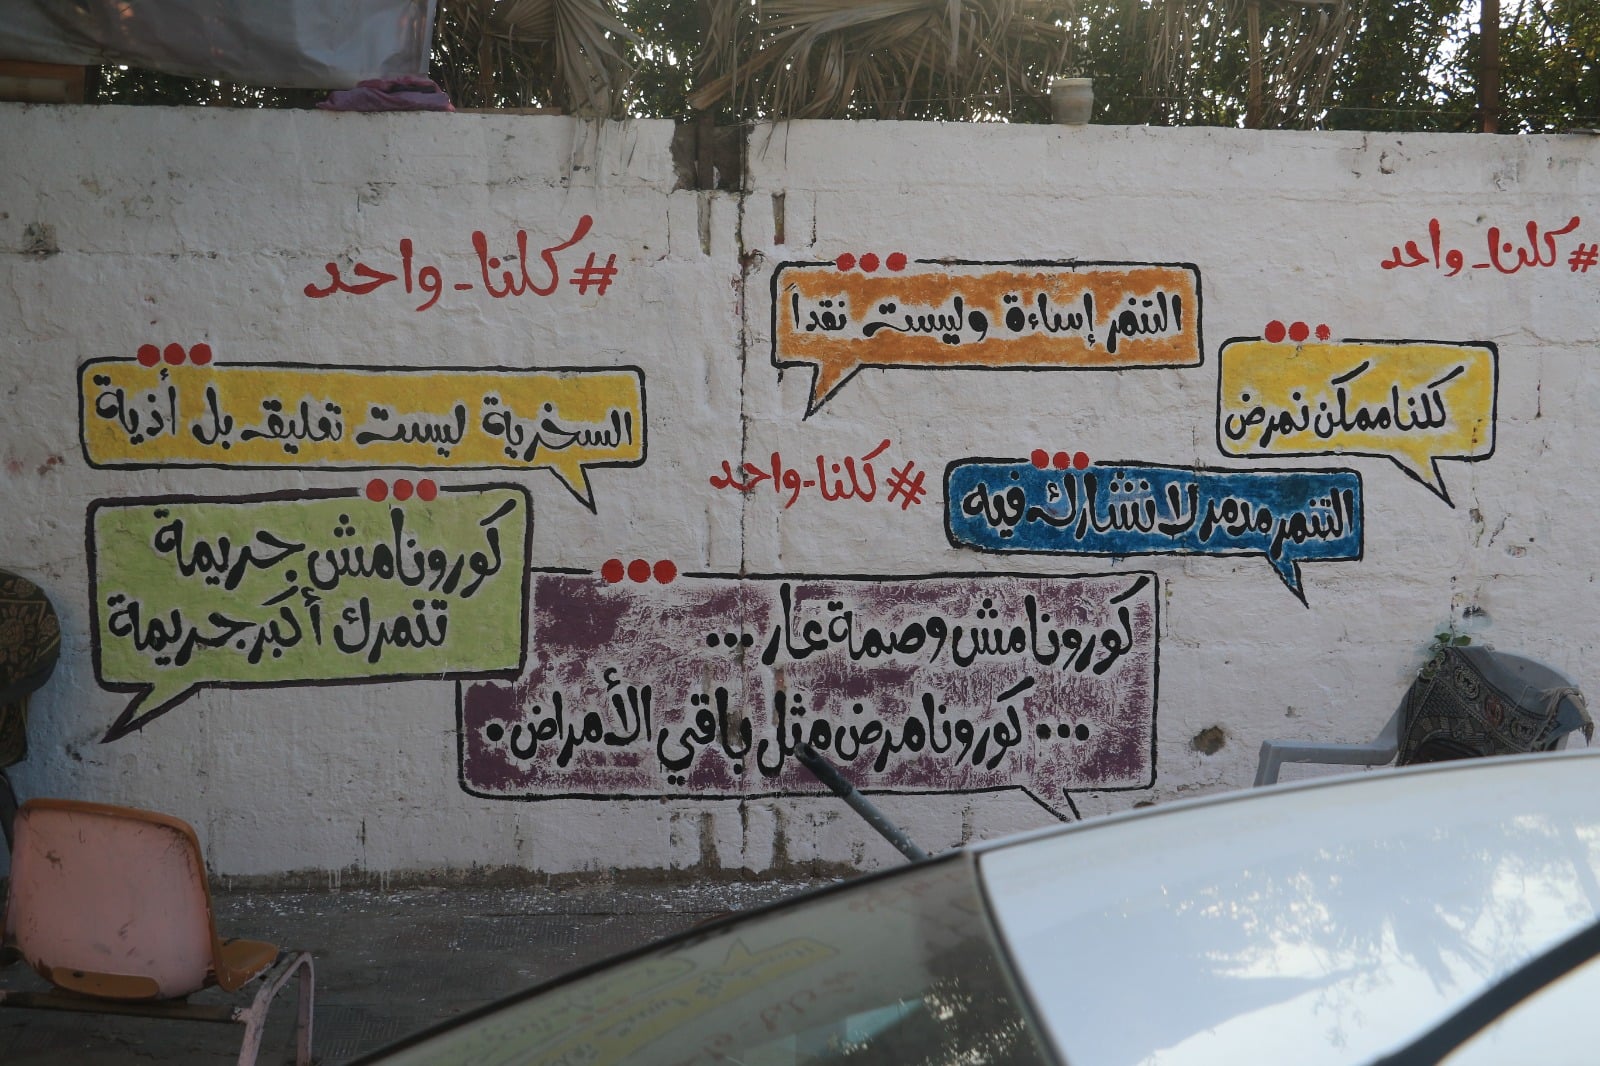 #كلنا_واحد
#كلنا_واحد
التنمر إساءة وليست نقدا
كلنا ممكن نمرض
السخرية ليست تعليق بل أذية
#كلنا_واحد
التنمر مدمر لا نشارك فيه
كورونا مش جريمة
تنمرك أكبر جريمة
كورونا مش وصمة عار ...
... كورونا مرض مثل باقي الأمراض.